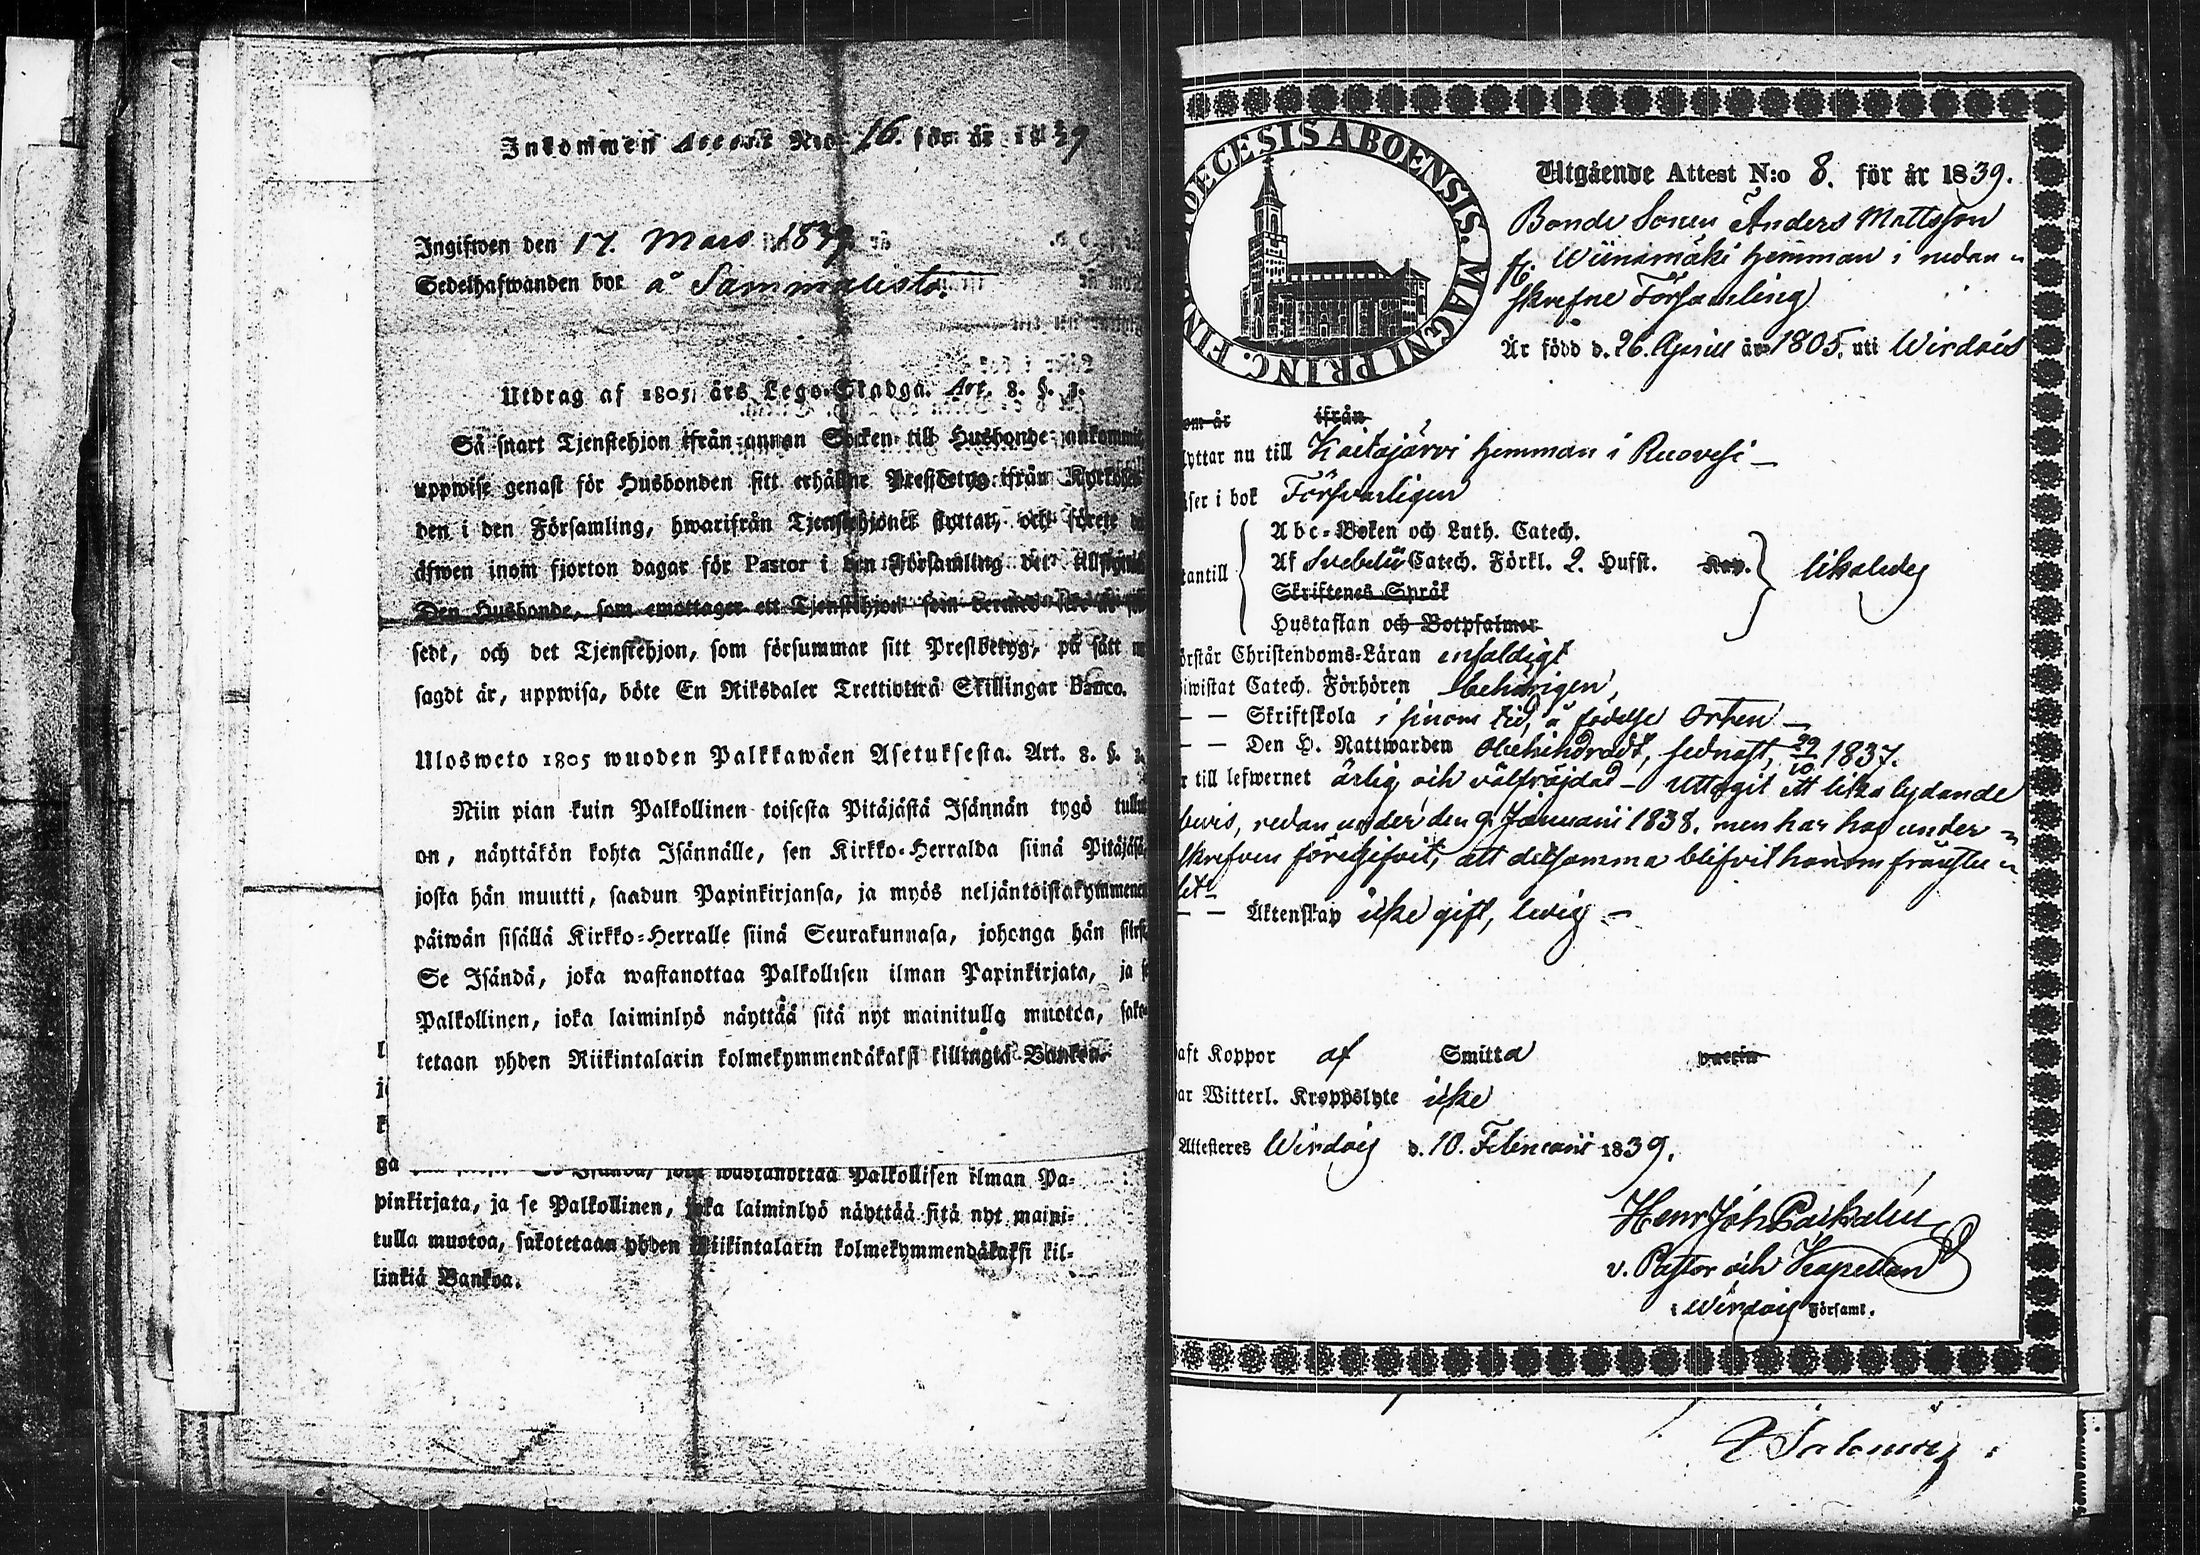 Inkommen Attest No 16. för år 1839
Ingifwen den 17. Mars 1839
Sedelhafwanden bor å Sammalisto.
Utdrag af 1805 års Lego-Stadga. Art. 8. §. 3.
Så snart Tjenstehjon ifrån annan Socken till Husbonde ankommit
uppwise genast för Husbonden sitt erhållne Prestbetyg ifrån
den i den Församling, hwarifrån Tjenstehjonet flyttar, och förete
äfwen inom fjorton dagar för Pastor i den Församling der
Den Husbonde, som emottager ett Tjenstehjon som
sedt, och det Tjenstehjon, som försummar sitt Prestbetyg, på sätt
sagdt är, uppwisa, böte En Riksdaler Trettiotwå Skillingar Banco.
Ulosweto 1805 wuoden Palkkawäen Asetuksesta. Art. 8. §.
Niin pian kuin Palkollinen toisesta Pitäjästä Isännän tygö
on, näyttäkön kohta Isännälle, sen Kirkko-Herralda siinä
josta hän muutti, saadun Papinkirjansa, ja myös
päiwän sisällä Kirkko-Herralle siinä Seurakunnasa, johonga hän
Se Isändä, joka wastanottaa Palkollisen ilman Papinkirjata, ja
Palkollinen, joka laiminlyö näyttää sitä nyt mainitulla muotoa,
tetaan yhden Riikintalarin kolmekymmendäkaksi killingiä Bankoa.
wastanottaa Palkollisen ilman Pa-
pinkirjata, ja se Palkollinen, joka laiminlyö näyttää sitä nyt maini-
tulla muotoa, sakotetaan yhden Riikintalarin kolmekymmendäkaksi kil-
linkiä Bankoa.
ABOENSIS. MAGNI PRINC. FIN
Utgående Attest N:o 8. för år 1839.
Bonde Sonen Anders Mattsson
fr. Wiinamäki hemman i nedan-
skrefne Församling
Är född d. 26. Aprill år 1805. uti Wirdois
om år ifrån
lyttar nu till Kaitajärvi hemman i Ruovesi —
äser i bok Försvarligen
Abc-Boken och Luth. Catech.
tantill Af Svebelii Catech. Förkl. 2. Hufst. Kap. likaledes
Skriftenes Språk
Hustaflan och Botpsalmer
örstår Christendoms-Läran enfaldigt
iwistat Catech. Förhören behörigen,
— — Skriftskola i sinom tid, å födelse Orten —
— — Den H. Nattwarden Obehindradt, sednast, 29/10 1837.
r till lefwernet ärlig och välfräjdad — Uttagit ett lika lydande
bevis, redan under den 9. Januarii 1838. men har hos under-
skrefven föregifvit, att detsamma blifvit honom frånstu-
let —
— — Äktenskap icke gift, ledig —
aft Koppor af Smitta vaccin
ar Witterl. Kroppslyte icke
Attesteres Wirdois d. 10. Februarii 1839.
Henr Joh
v. Pastor och Kapellan
i Wirdois Församl.